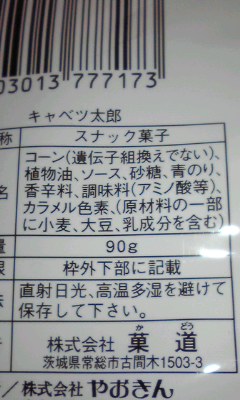 03013 777173
キャベツ太郎
称 スナック菓子
コーン(遺伝子組換えでない)、
植物油、ソース、砂糖、青のり、
名 香辛料、調味料(アミノ酸等)、
カラメル色素、(原材料の一部
に小麦、大豆、乳成分を含む)
量 90g
限 枠外下部に記載
法 直射日光、高温多湿を避けて
保存して下さい。
か どう
株式会社 菓道
茨城県常総市古間木1503-3
/株式会社 やおきん